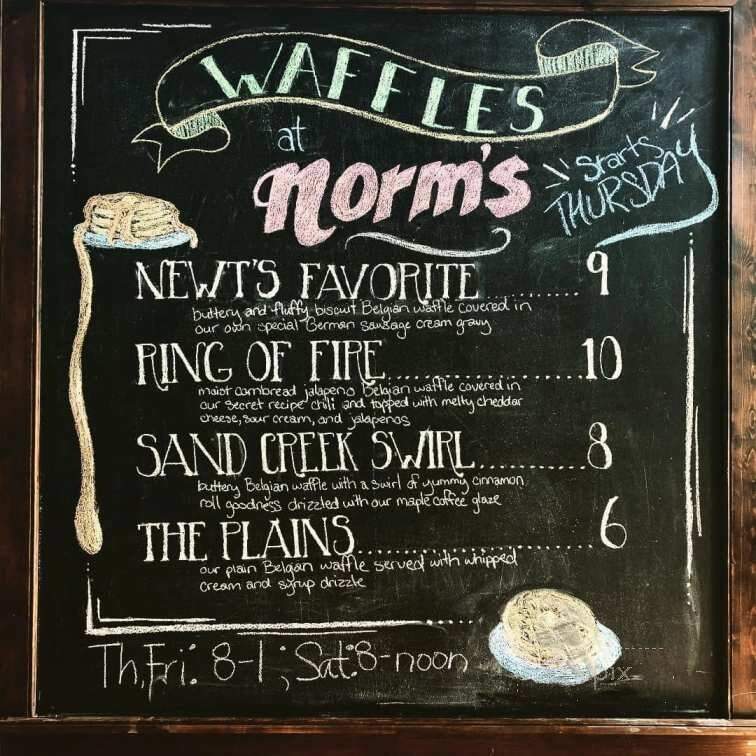 WAFFLES
at
norm's
starts
THURSDAY
NEWT'S FAVORITE.........9
buttery and fluffy biscuit Belgian waffle covered in
our own special German sausage cream gravy
RING OF FIRE....................10
moist cornbread jalapeno Belgian waffle covered in
our secret recipe chili and topped with melty cheddar
cheese, sour cream, and jalapenos
SAND CREEK SWIRL..........8
buttery Belgian waffle with a swirl of yummy cinnamon
roll goodness drizzled with our maple coffee glaze
THE PLAINS......................6
our plain Belgian waffle served with whipped
cream and syrup drizzle
Th, Fri: 8-1; Sat: 8-noon